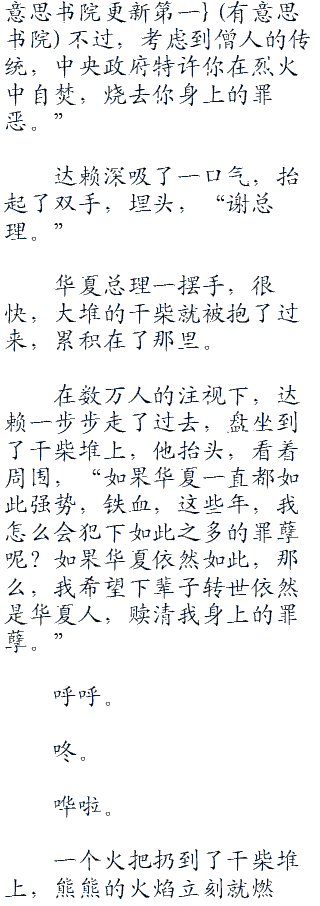 意思书院更新第一} (有意思
书院) 不过，考虑到僧人的传
统，中央政府特许你在烈火
中自焚，烧去你身上的罪
恶。”
达赖深吸了一口气，抬
起了双手，埋头，“谢总
理。”
华夏总理一摆手，很
快，大堆的干柴就被抱了过
来，累积在了那里。
在数万人的注视下，达
赖一步步走了过去，盘坐到
了干柴堆上，他抬头，看着
周围，“如果华夏一直都如
此强势，铁血，这些年，我
怎么会犯下如此之多的罪孽
呢？如果华夏依然如此，那
么，我希望下辈子转世依然
是华夏人，赎清我身上的罪
孽。”
呼呼。
咚。
哗啦。
一个火把扔到了干柴堆
上，熊熊的火焰立刻就燃